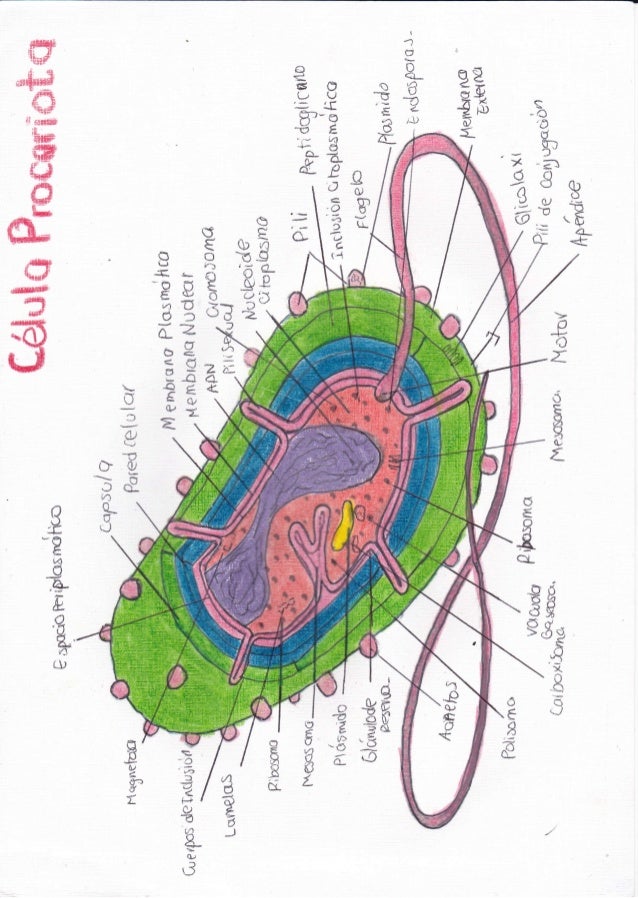 Célula Procariota
Espacio Periplasmático
Capsula
Pared celular
Membrana Plasmática
Membrana Nuclear
ADN
Pili sexual
Cromosoma
Nucleoide
Citoplasma
Pili
Peptidoglicano
Inclusión Citoplasmática
Flagelo
Plasmido
Endosporas-
Membrana
Externa
Pili de conjugación
Apéndice
Motor
Mesosoma.
Ribosoma
vacuola
Gaseosa.
Carboxisoma
Polisoma
Reserva-
Plásmido
Mesosoma
Ribosoma
Lamelas
Cuerpos de Inclusión